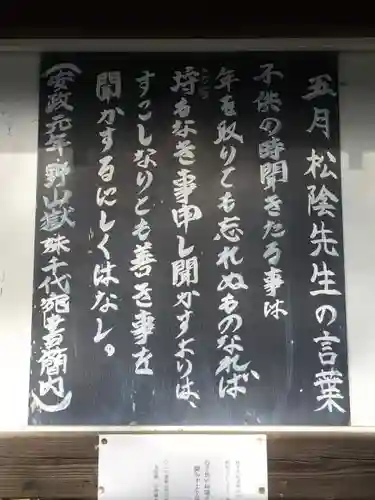 五月松陰先生の言葉
不供の時聞きたる事は
年を取りても忘れぬものなれば
埒もなき事申し聞かすよりは、
すこしなりとも善き事を
聞かするにしくはなし。
(安政元年野山獄妹千代宛書簡内)